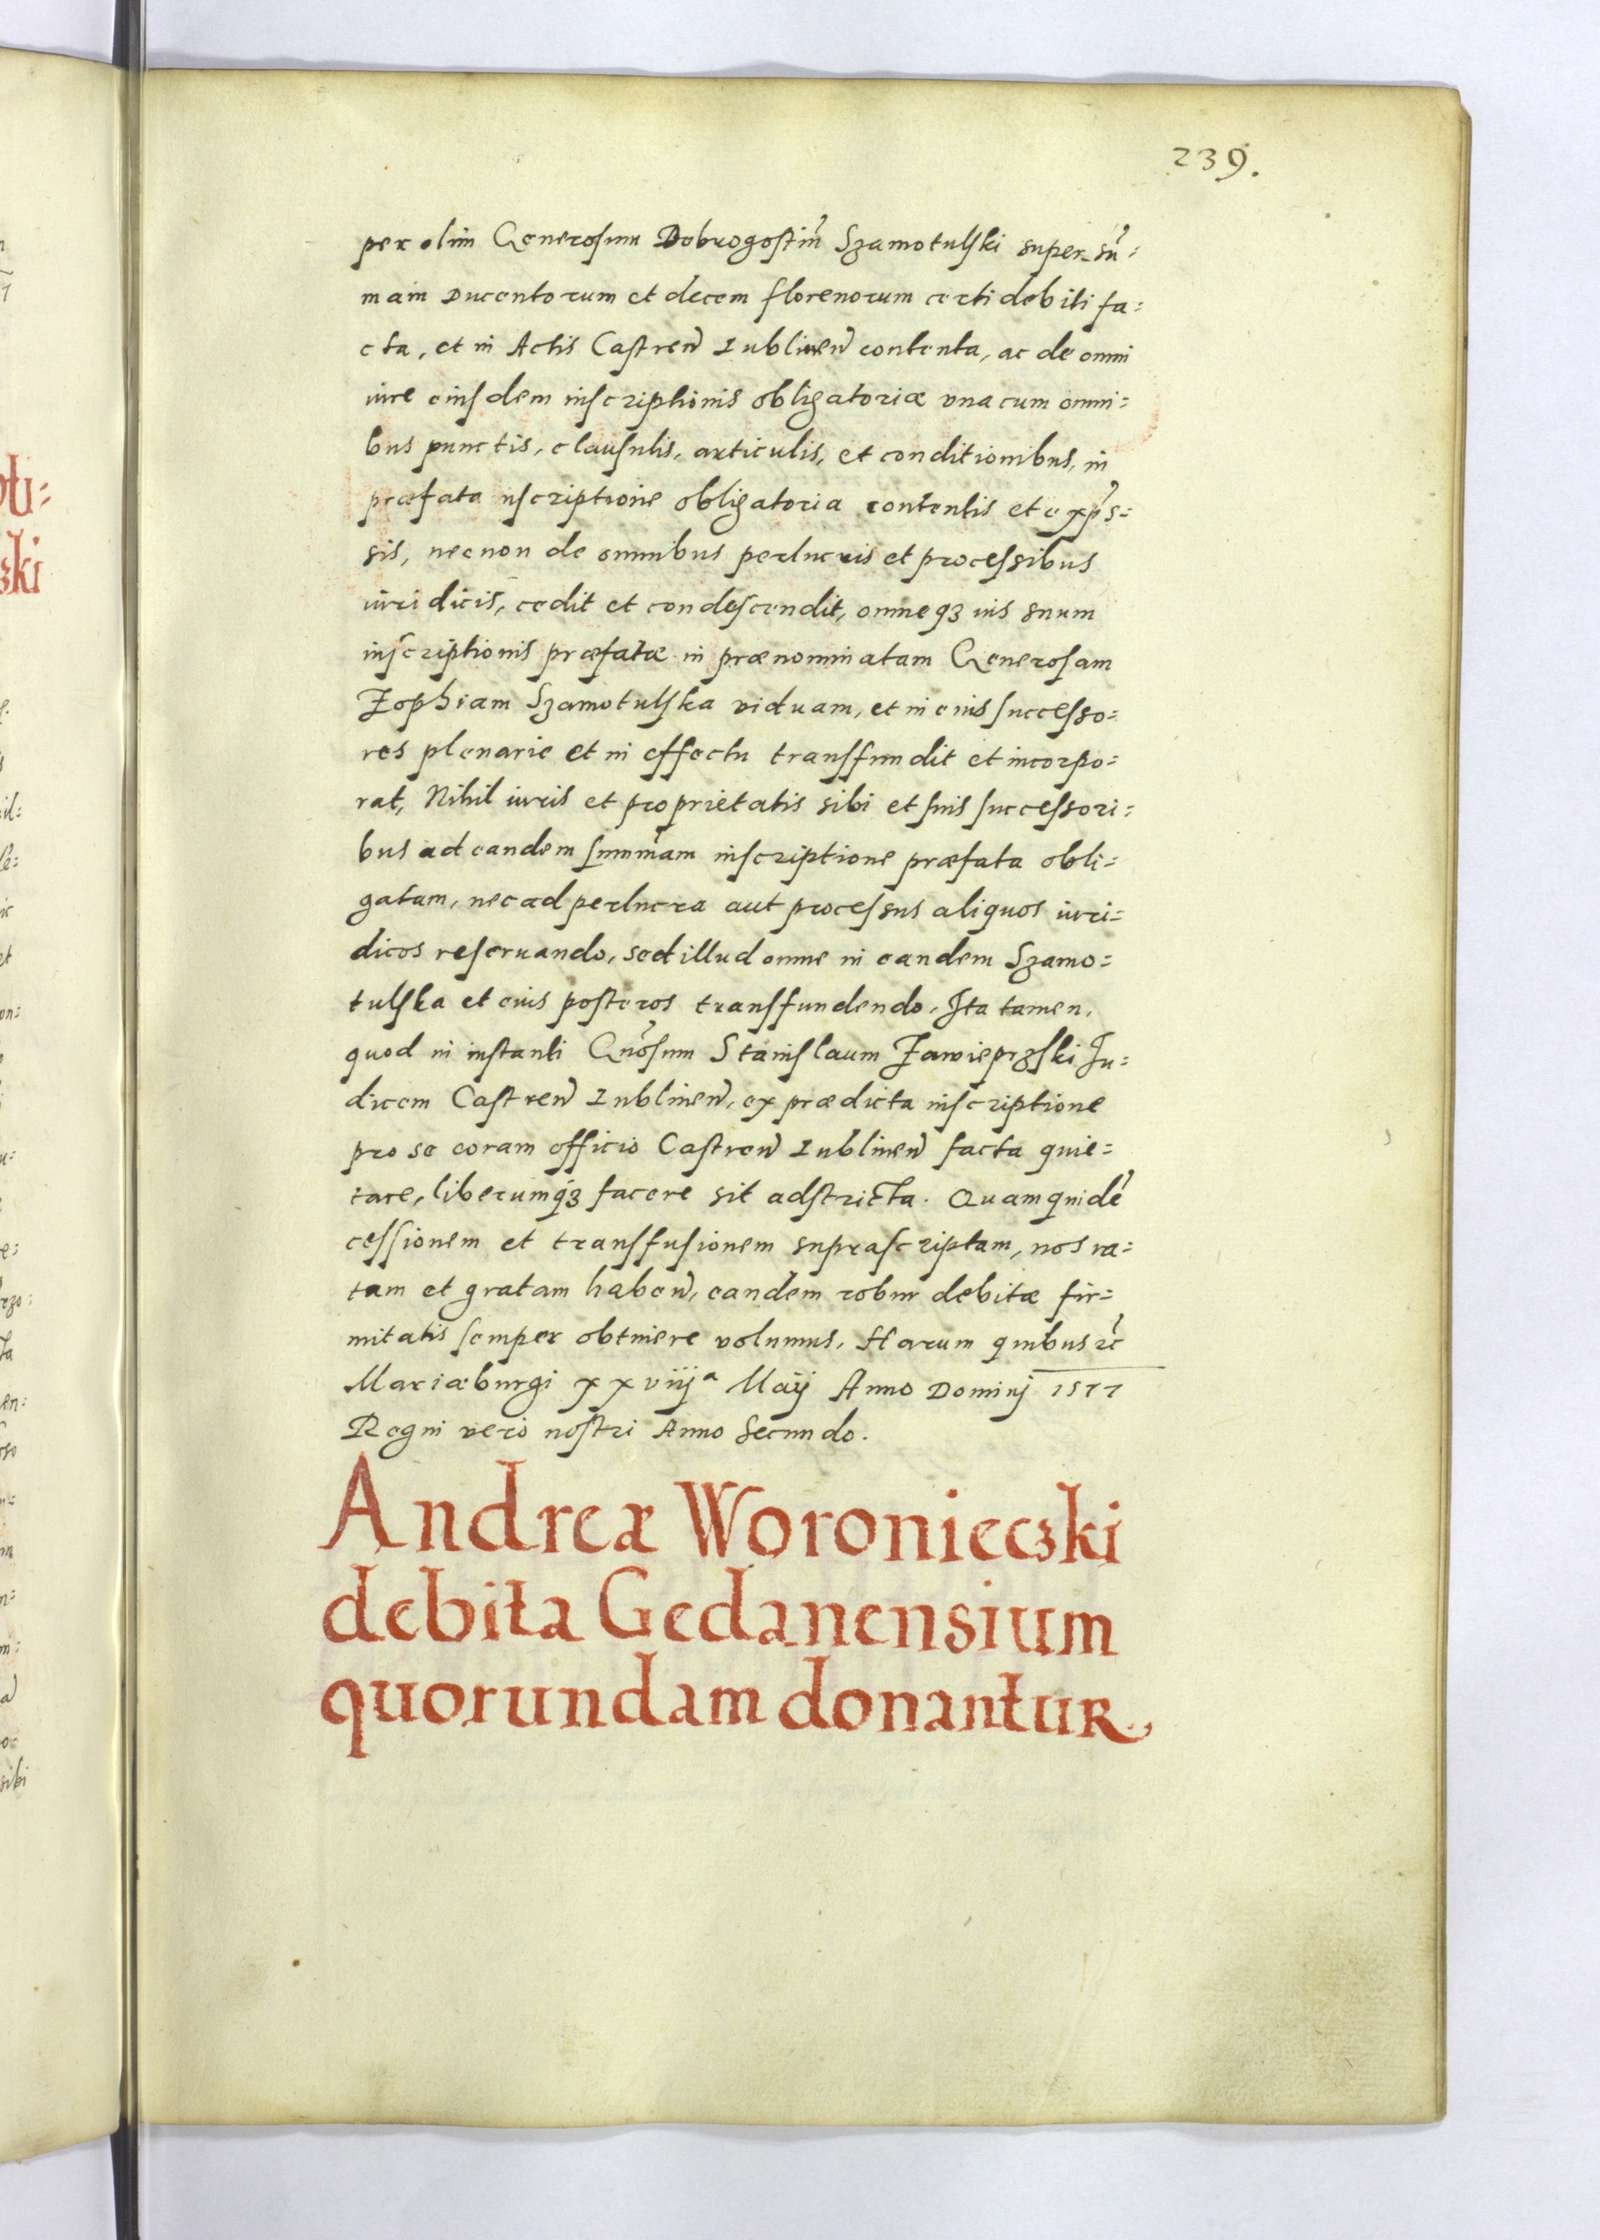 239.
per olim Generosum Dobrogostiu᷈ Szamotulski super su᷈=
mam Ducentorum et decem florenorum certi debiti fa=
cta, et in Actis Castren̄ Lublinen̄ contenta, ac de omni
iure eiusdem inscriptionis obligatoriæ vna cum omni=
bus punctis, clausulis, articulis, et conditionibus, in
præfata inscriptione obligatoria contentis et exp̄s=
sis, necnon de omnibus perlucris et processibus
iuridicis, cedit et condescendit, omneq3 ius suum
inscriptionis præfatæ in prænominatam Generosam
Zophiam Szamotulska viduam, et in eius successo=
res plenarie et in effectu transfundit et incorpo=
rat, Nihil iuris et proprietatis sibi et suis successori=
bus ad eandem summam inscriptione præfata obli=
gatam, nec ad perlucra aut processus aliquos iuri=
dicos reseruando, sed illud omne in eandem Szamo=
tulska et eius posteros transfundendo, Ita tamen,
quod in instanti Gn̄osum Stanislaum Zawieprzski Iu=
dicem Castren̄ Lublinen̄, ex prædicta inscriptione
pro se coram officio Castren̄ Lublinen̄ facta quie=
tare, liberumq3 facere sit adstricta. Quam quide᷈
cessionem et transfusionem suprascriptam, nos ra=
tam et gratam haben̄, eandem robur debitæ fir=
mitatis semper obtinere volumus, Harum quibus ꝛc̄
Mariæburgi xxviijᵃ Maij Anno Dominj 1577
Regni vero nostri Anno Secundo.
Andreæ Woronieczki
debita Gedanensium
quorundam donantur.,